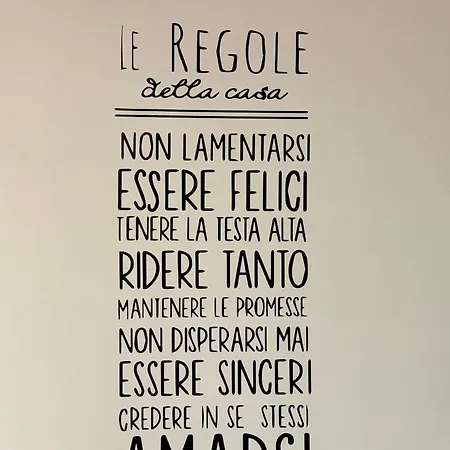 LE REGOLE
della casa
NON LAMENTARSI
ESSERE FELICI
TENERE LA TESTA ALTA
RIDERE TANTO
MANTENERE LE PROMESSE
NON DISPERARSI MAI
ESSERE SINCERI
CREDERE IN SE STESSI
AMARSI